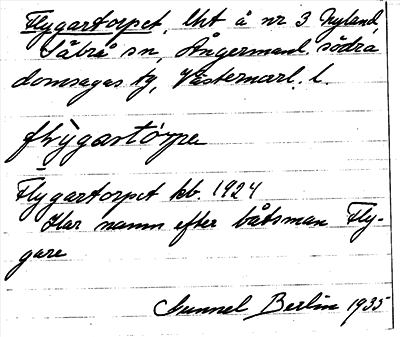 Flygartorpet, lht å nr 3 Nyland,
Säbrå sn, Ångermanl. södra
domsagas tg, Västernorrl. l.
flỳgartórpe
Flygartorpet kb. 1924
Har namn efter båtsman Fly-
gare
Gunnel Berlin 1935